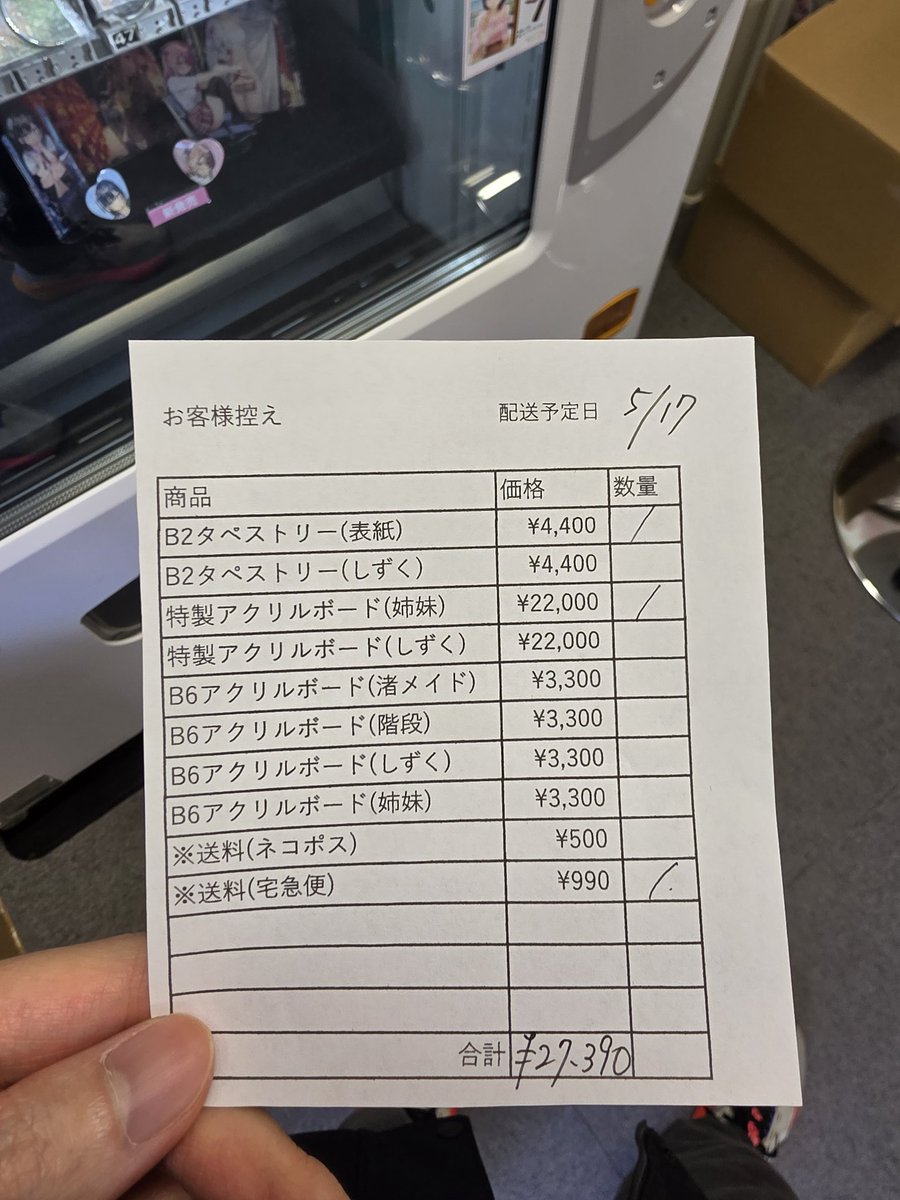 47
新発売
お客様控え 配送予定日 5/17
商品 価格 数量
B2タペストリー(表紙) ¥4,400 /
B2タペストリー(しずく) ¥4,400
特製アクリルボード(姉妹) ¥22,000 /
特製アクリルボード(しずく) ¥22,000
B6アクリルボード(渚メイド) ¥3,300
B6アクリルボード(階段) ¥3,300
B6アクリルボード(しずく) ¥3,300
B6アクリルボード(姉妹) ¥3,300
※送料(ネコポス) ¥500
※送料(宅急便) ¥990 /.
合計 ¥27.390